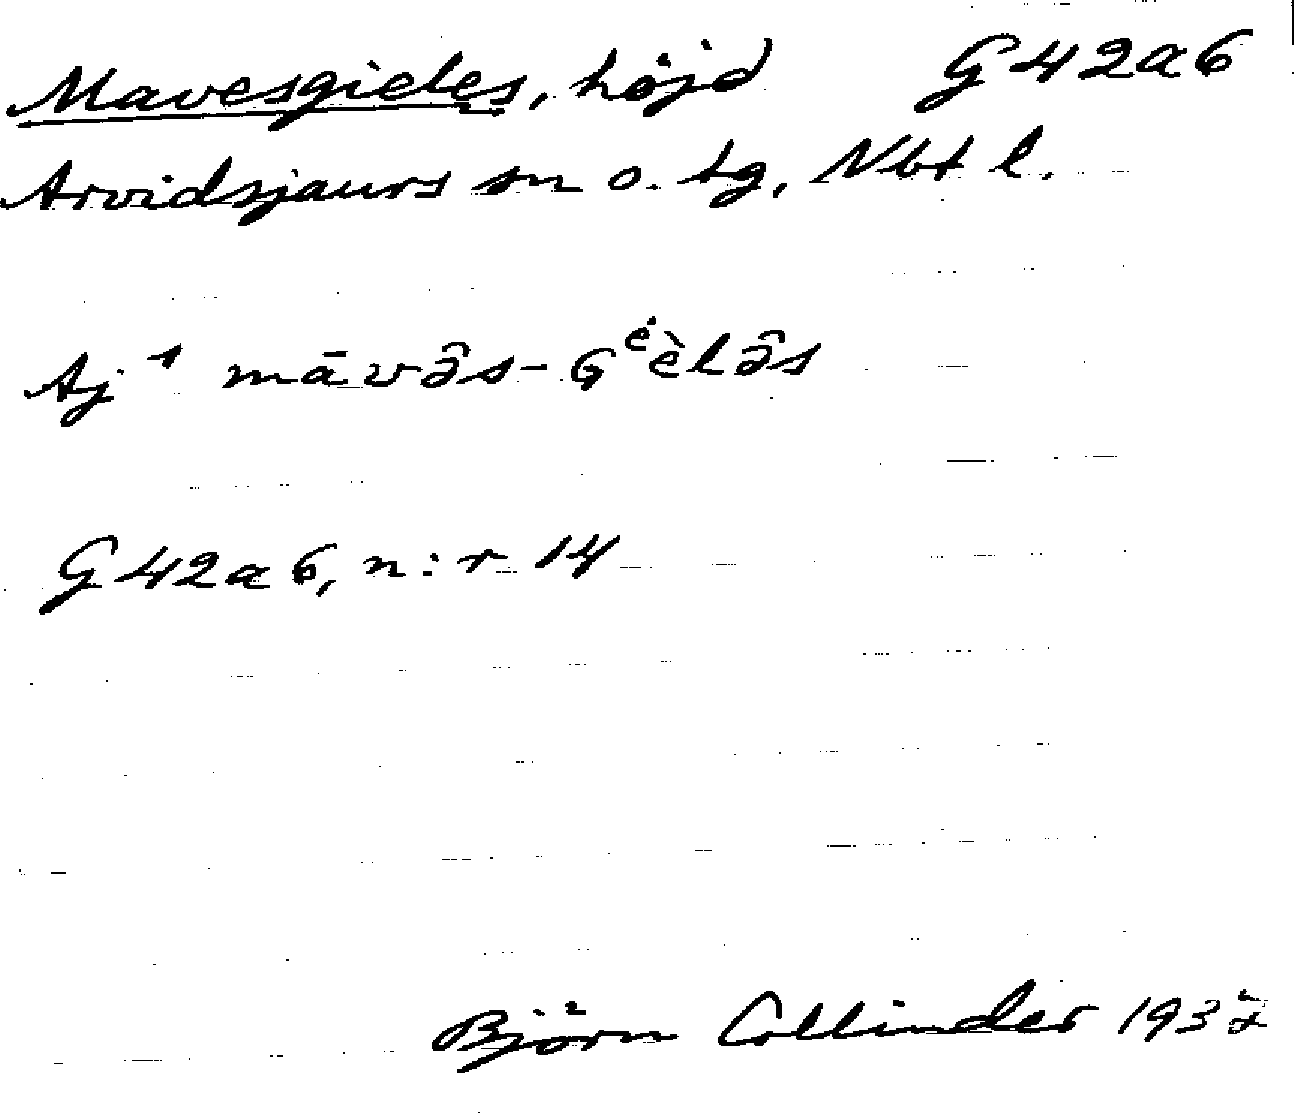 Mavesgieles, höjd G42a6
Arvidsjaurs sn o. tg, Nbt l.
Aj 1 māvə̑s-Gėèlə̑s
G42a6, n:r 14
Björn Collinder 1937